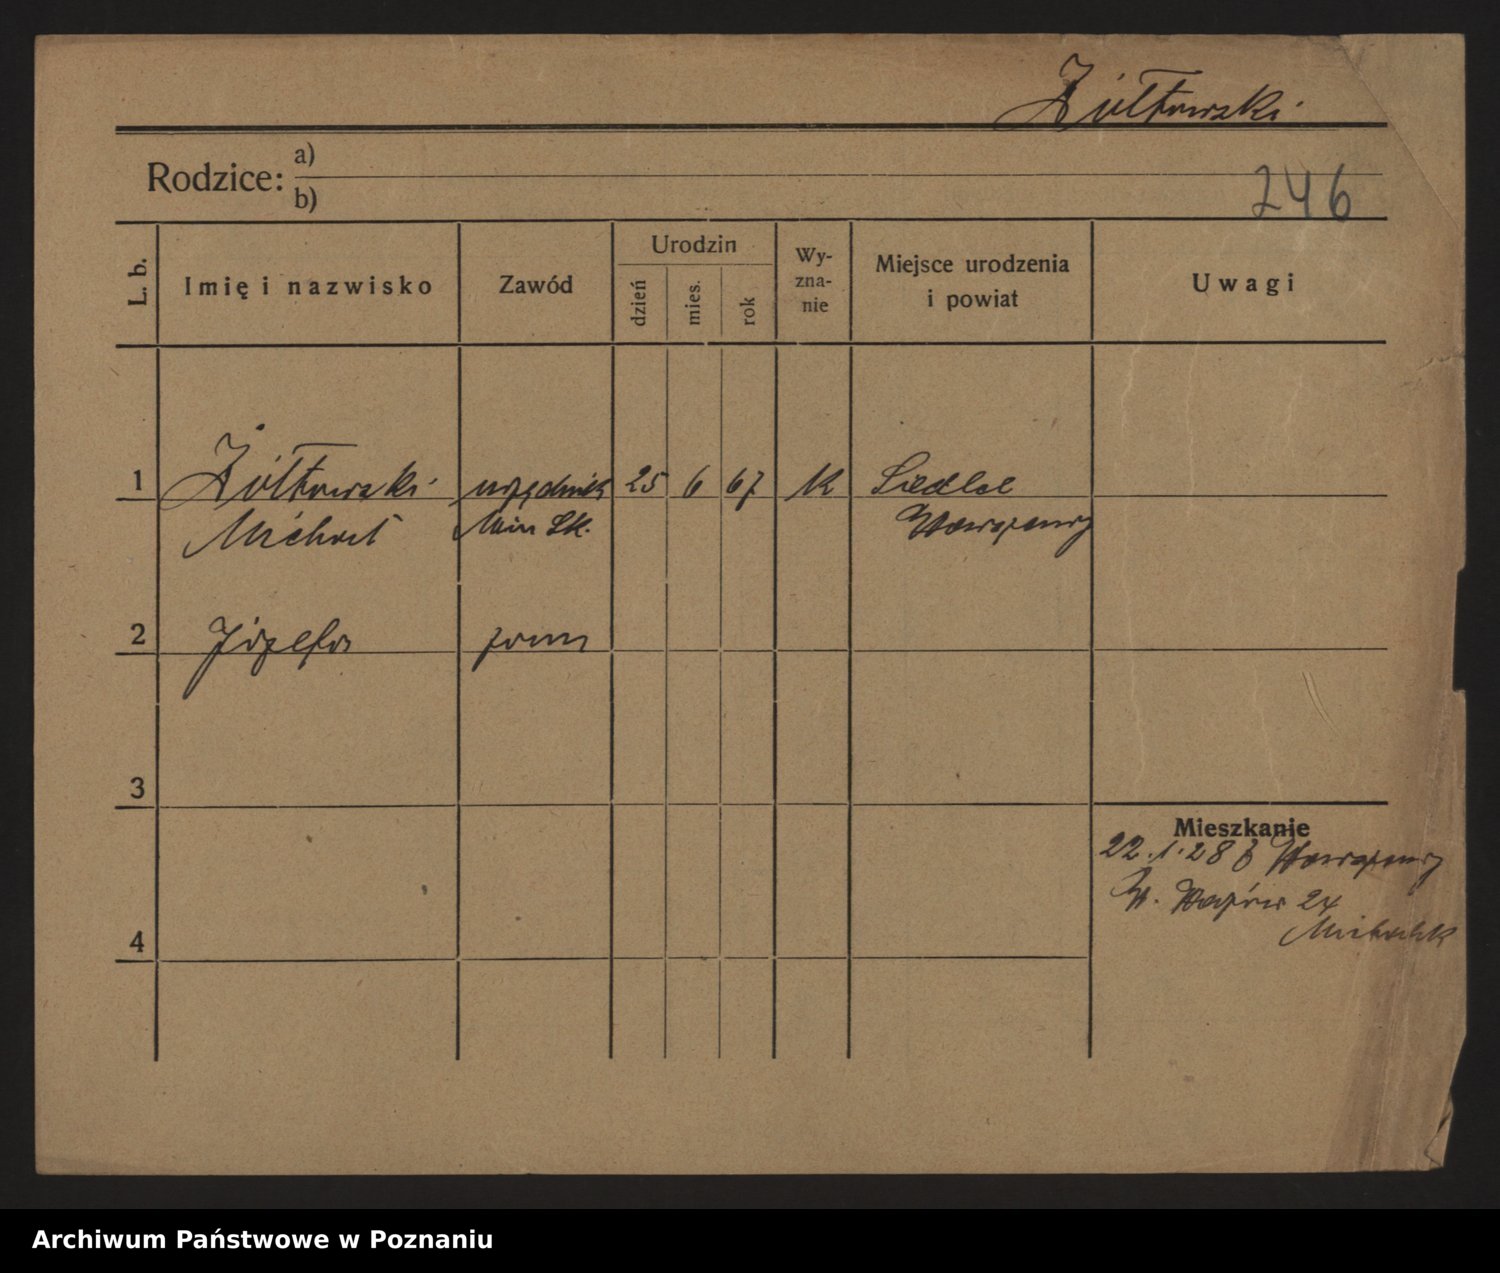 Żółtowski
Rodzice: a)
b)
246
L. b. Imię i nazwisko Zawód Urodzin dzień mies. rok Wy-zna-nie Miejsce urodzenia i powiat Uwagi
1 Żółtowski urzędnik 25 6 67 K Siedlce
Michał Min Sk. Warszawy
2 Józefa żona
3
Mieszkanie
22.1.28 z Warszawy
24
4
Archiwum Państwowe w Poznaniu